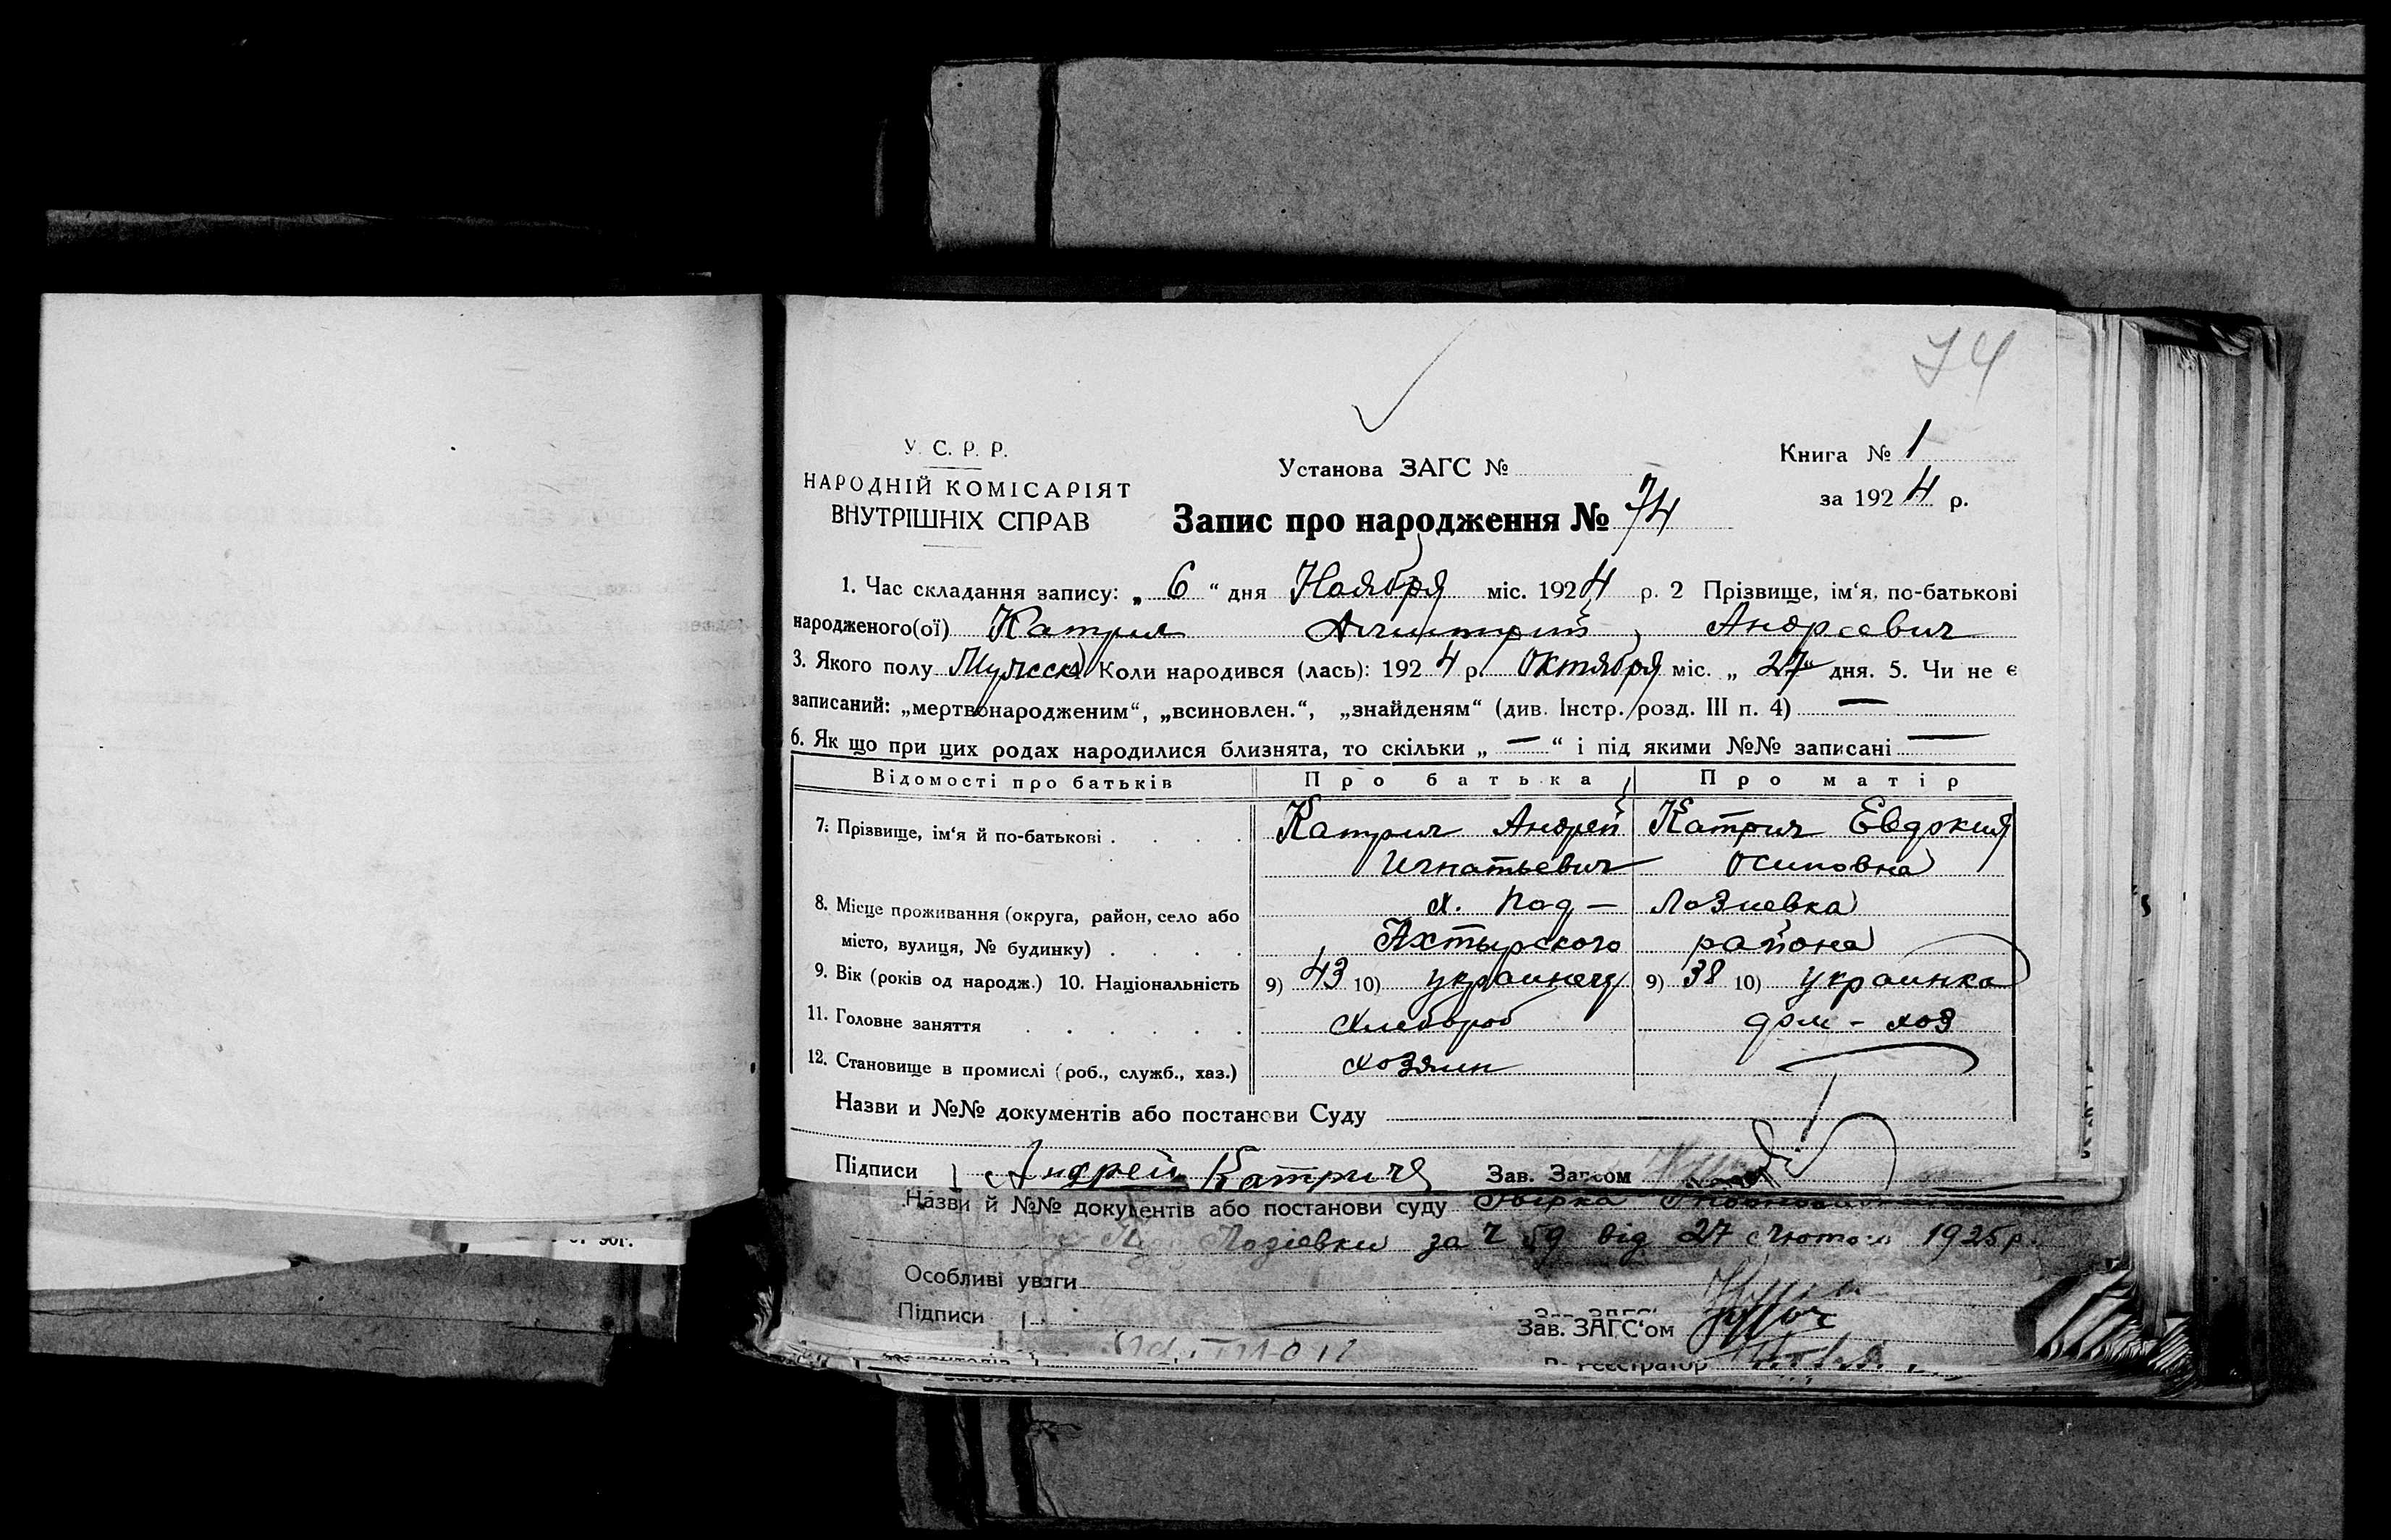 74
У. С. Р. Р.
НАРОДНІЙ КОМІСАРІЯТ
ВНУТРІШНІХ СПРАВ
Установа ЗАГС №
Книга № 1
за 1924 р.
Запис про народження № 74
1. Час складання запису: „ 6 “ дня Ноября міс. 1924 р. 2 Прізвище, ім‘я, по-батькові
народженого(ої) Катрич Дмитрий Андреевич
3. Якого полу Мужеск Коли народився (лась): 1924 р. Октября міс. „ 27 “ дня. 5. Чи не є
записаний: „мертвонародженим“, „всиновлен.“, „знайденям“ (див. Інстр. розд. III п. 4) —
6. Як що при цих родах народилися близнята, то скільки „ — “ і під якими №№ записані —
Відомості про батьків Про батька Про матір
7. Прізвище, ім‘я й по-батькові . . . . Катрич Андрей Катрич Евдокия
Игнатьевич Осиповна
8. Місце проживання (округа, район, село або х. Под – Лозиевка
місто, вулиця, № будинку) . . . . Ахтырского района
9. Вік (років од народж.) 10. Національність 9) 43 10) украинец 9) 38 10) украинка
11. Головне заняття . . . . . . Хлебороб дом – хоз
12. Становище в промислі (роб., служб., хаз.) хозяин —
Назви и №№ документів або постанови Суду
Підписи Андрей Катрича Зав. Загсом
Назви й №№ документів або постанови суду
Лозіевки за Ч 59 від 27 лютого 1925 р.
Особливі уваги
Підписи
Зав. ЗАГС‘ом
Реєстратор